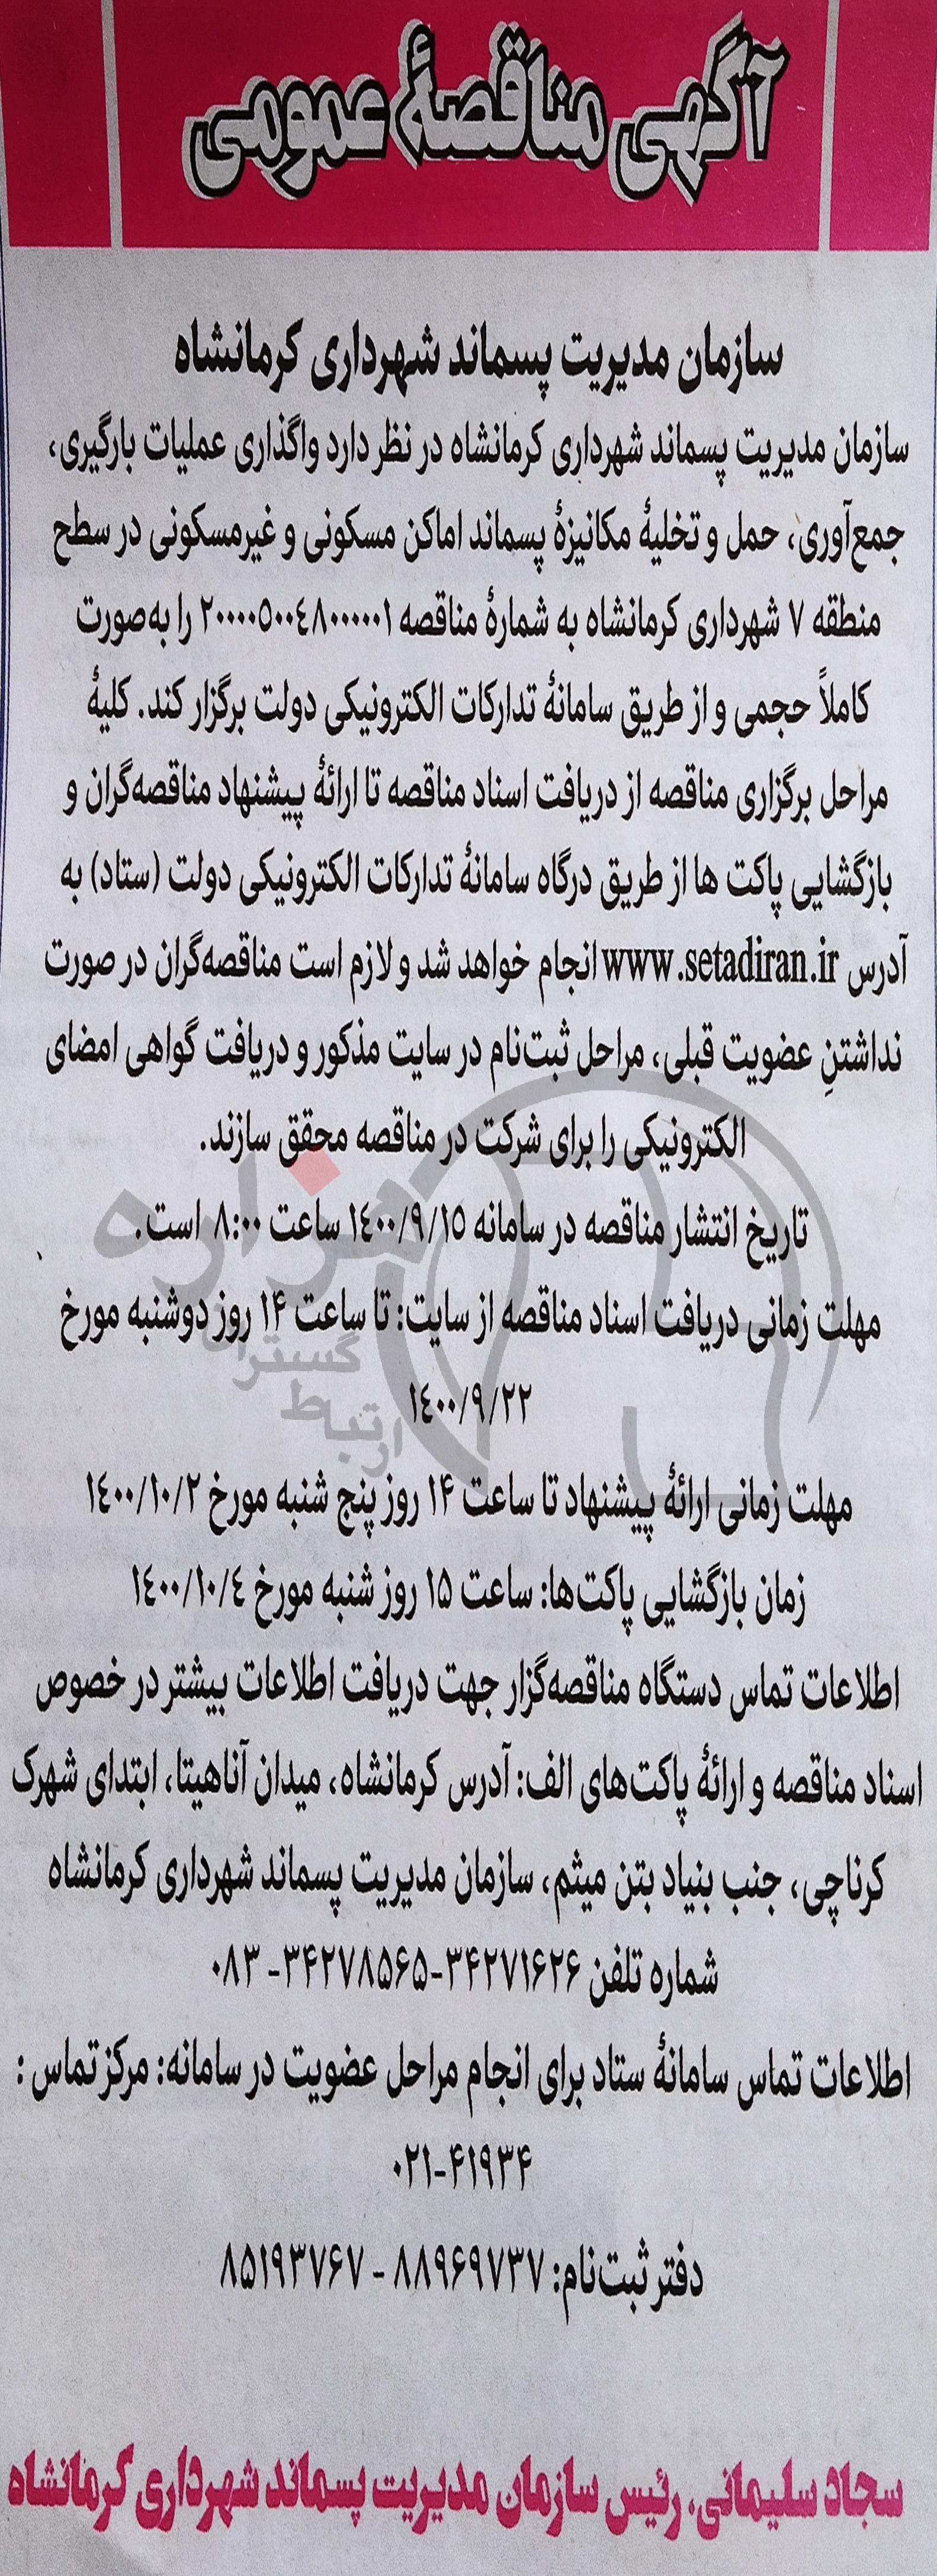 آگهی مناقصهٔ عمومی
سازمان مدیریت پسماند شهرداری کرمانشاه
سازمان مدیریت پسماند شهرداری کرمانشاه در نظر دارد واگذاری عملیات بارگیری،
جمع‌آوری، حمل و تخلیهٔ مکانیزهٔ پسماند اماکن مسکونی و غیرمسکونی در سطح
منطقه ۷ شهرداری کرمانشاه به شمارهٔ مناقصه ۲۰۰۰۰۵۰۰٤۸۰۰۰۰۰۱ را به‌صورت
کاملاً حجمی و از طریق سامانهٔ تدارکات الکترونیکی دولت برگزار کند. کلیهٔ
مراحل برگزاری مناقصه از دریافت اسناد مناقصه تا ارائهٔ پیشنهاد مناقصه‌گران و
بازگشایی پاکت ها از طریق درگاه سامانهٔ تدارکات الکترونیکی دولت (ستاد) به
آدرس www.setadiran.ir انجام خواهد شد و لازم است مناقصه‌گران در صورت
نداشتنِ عضویت قبلی، مراحل ثبت‌نام در سایت مذکور و دریافت گواهی امضای
الکترونیکی را برای شرکت در مناقصه محقق سازند.
تاریخ انتشار مناقصه در سامانه ۱٤۰۰/۹/۱۵ ساعت ۸:۰۰ است.
مهلت زمانی دریافت اسناد مناقصه از سایت: تا ساعت ۱۴ روز دوشنبه مورخ
۱٤۰۰/۹/۲۲
مهلت زمانی ارائهٔ پیشنهاد تا ساعت ۱۴ روز پنج شنبه مورخ ۱٤۰۰/۱۰/۲
زمان بازگشایی پاکت‌ها: ساعت ۱۵ روز شنبه مورخ ۱٤۰۰/۱۰/٤
اطلاعات تماس دستگاه مناقصه‌گزار جهت دریافت اطلاعات بیشتر در خصوص
اسناد مناقصه و ارائهٔ پاکت‌های الف: آدرس کرمانشاه، میدان آناهیتا، ابتدای شهرک
کرناچی، جنب بنیاد بتن میثم، سازمان مدیریت پسماند شهرداری کرمانشاه
شماره تلفن ۳۴۲۷۱۶۲۶-۳۴۲۷۸۵۶۵- ۰۸۳
اطلاعات تماس سامانهٔ ستاد برای انجام مراحل عضویت در سامانه: مرکز تماس :
۰۲۱-۴۱۹۳۴
دفتر ثبت‌نام: ۸۸۹۶۹۷۳۷ - ۸۵۱۹۳۷۶۷
سجاد سلیمانی، رئیس سازمان مدیریت پسماند شهرداری کرمانشاه
هزاره
گستران
ارتباط